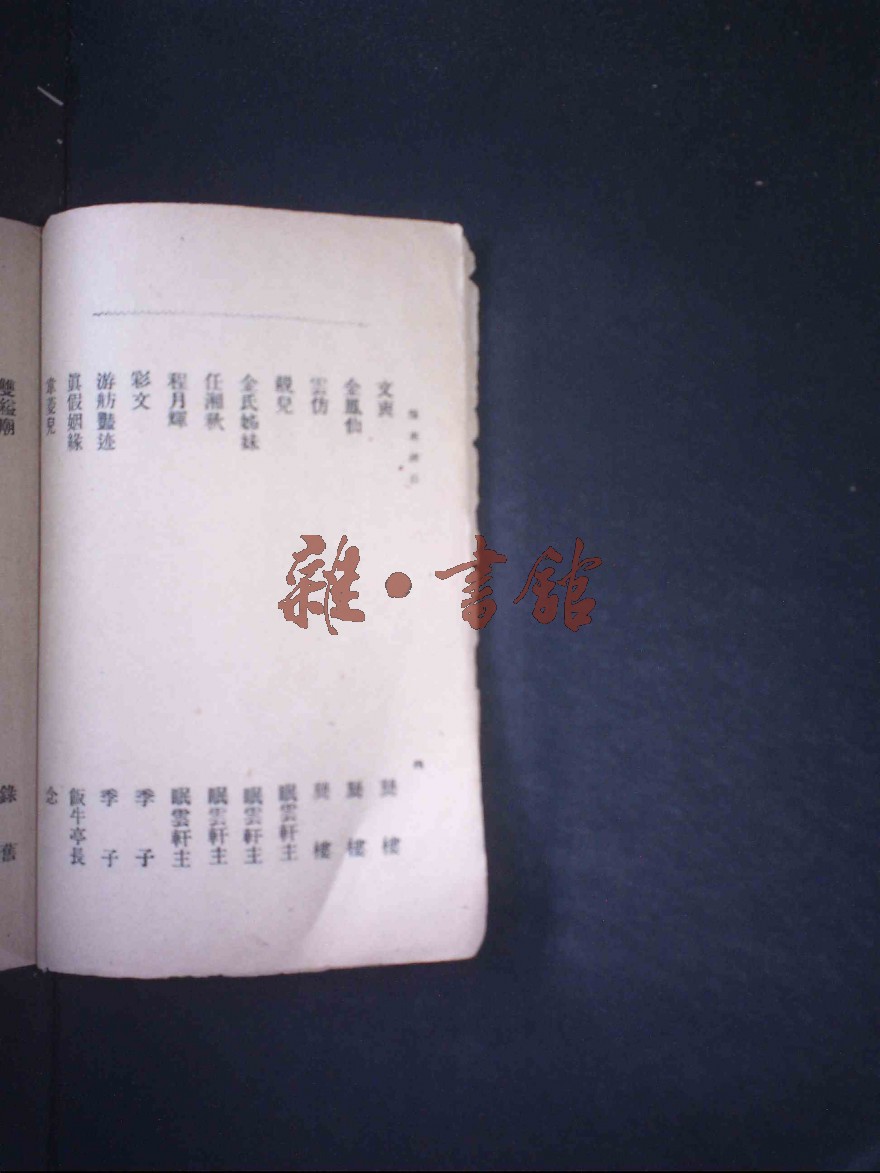 文爽 龑樓
金鳳仙 龑樓
雲仿 龑樓
靚兒 眠雲軒主
金氏姊妹 眠雲軒主
任湘秋 眠雲軒主
程月輝 眠雲軒主
彩文 季子
游舫豔迹 季子
眞假姻緣 飯牛亭長
菱兒 念
雙 廟 錄舊
雜·書館